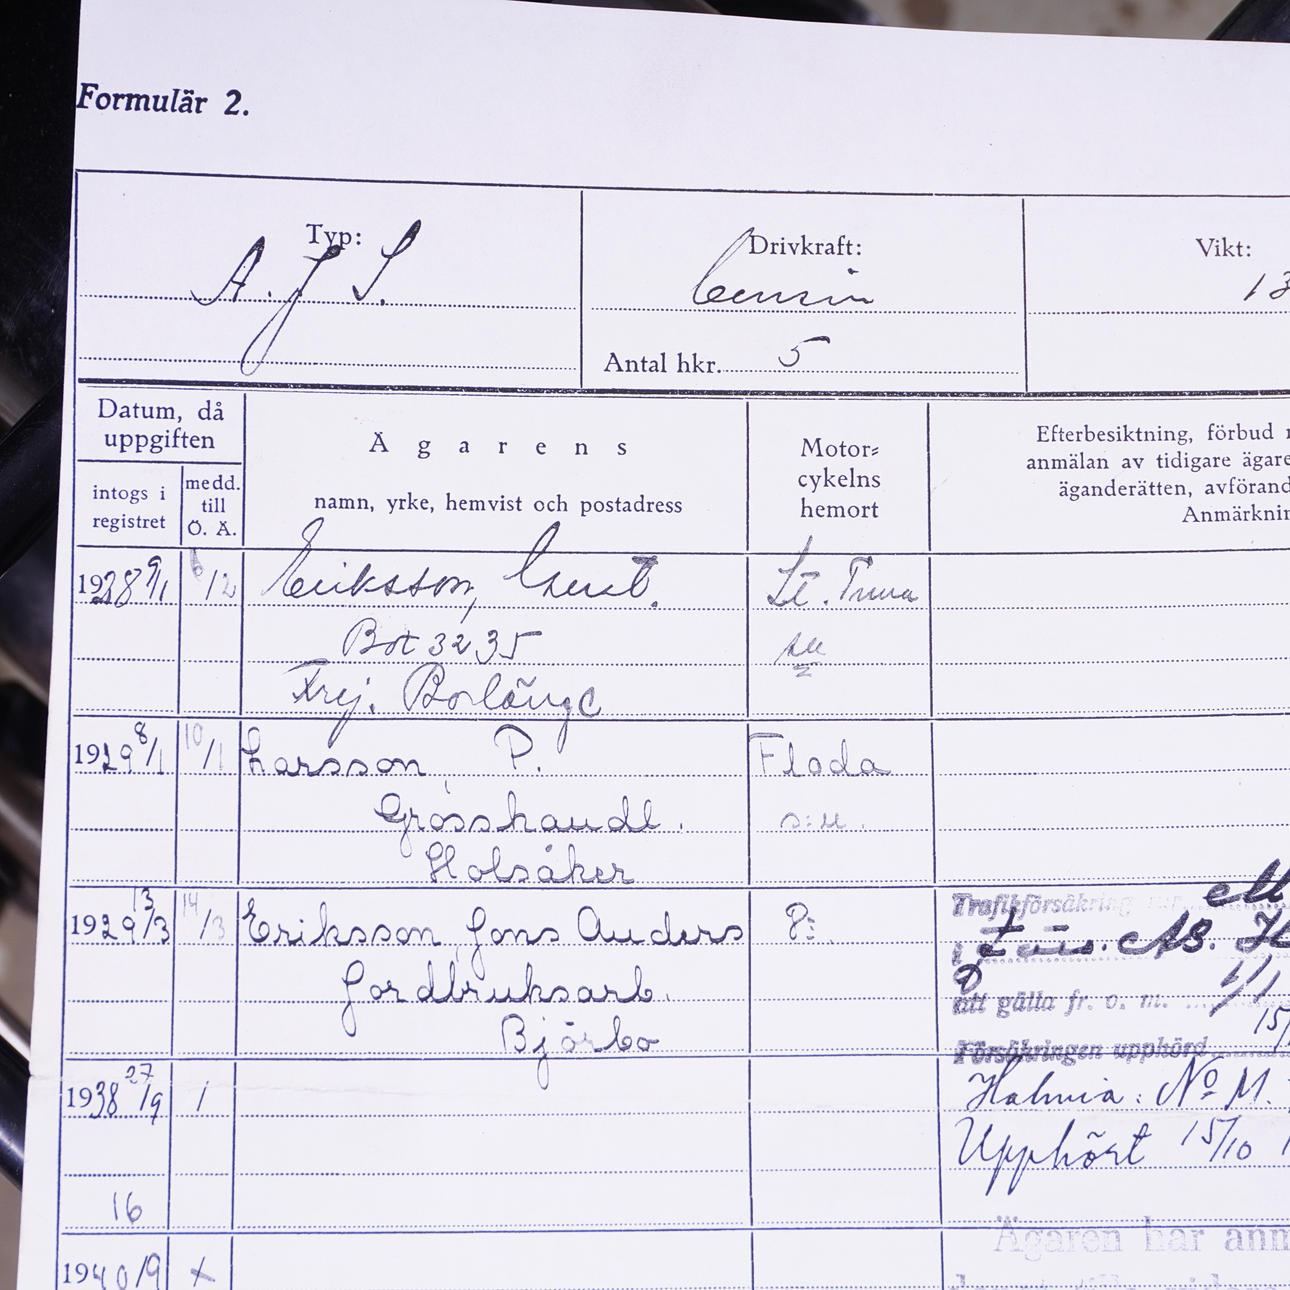 Formulär 2.
Typ:
A. J S.
Drivkraft:
Bensin
Antal hkr. 5
Vikt:
13
Datum, då
uppgiften
intogs i
registret
medd.
till
Ö. Ä.
Ägarens
namn, yrke, hemvist och postadress
Motor-
cykelns
hemort
Efterbesiktning, förbud
anmälan av tidigare ägare
äganderätten, avförand
Anmärknin
1928 9/1 6/12 Eriksson, Ernst. St. Tuna
Box 3235
Frej. Borlänge
1929 8/1 10/1 Larsson, P. Floda
Grosshandl. s:n.
Holsåker
1929 13/3 14/3 Eriksson Jöns Anders
Jordbruksarb.
Björbo
Trafikförsäkring
i AB.
att gälla fr. o. m. 1/1
15/
Försäkringen upphörd
1938 27/9 / Holmia: No M.
Upphört 15/10 1
16
Ägaren har anm
1940 /9 x